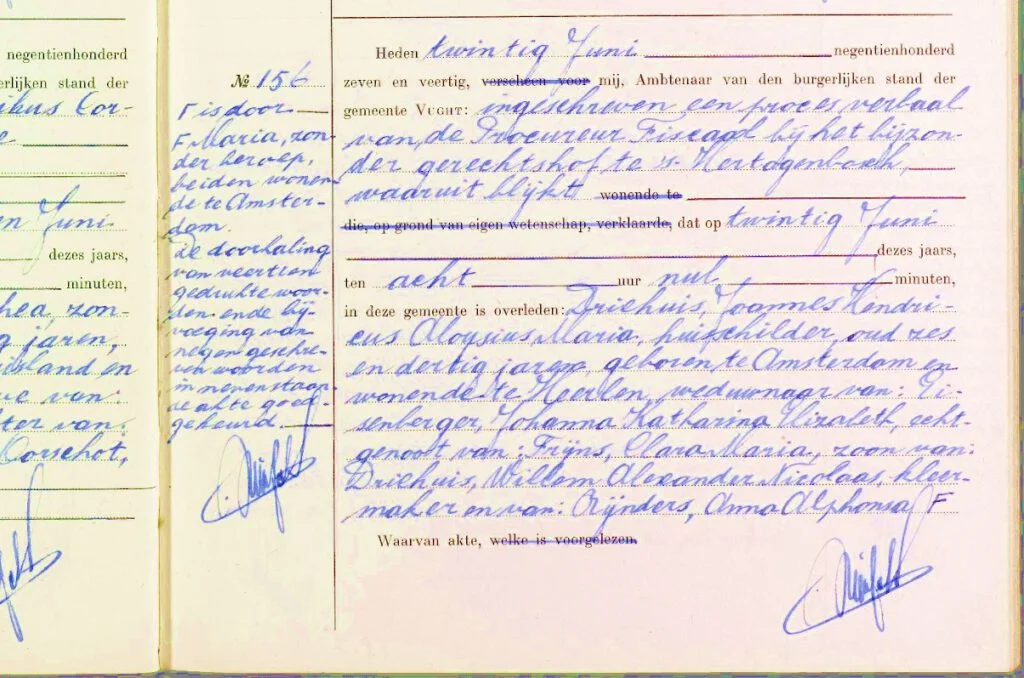 negentienhonderd
erlijken stand der
ibus Cor-
e
en Juni
dezes jaars,
minuten,
hea, zon-
g jaren,
iesland en
ve van:
ter van:
Oorschot,
№ 156
F is door
F Maria, zon-
der beroep,
beiden wonen-
de te Amster-
dam.
De doorhaling
van veertien
gedrukte woor-
den en de bij-
voeging van
negen geschre-
ven woorden
in nevenstaan-
de akte goed-
gekeurd.
Heden twintig Juni negentienhonderd
zeven en veertig, verscheen voor mij, Ambtenaar van den burgerlijken stand der
gemeente VUGHT: ingeschreven een proces verbaal
van de Procureur Fiscaal bij het bijzon-
der gerechtshof te 's-Hertogenbosch,
waaruit blijkt wonende te
die, op grond van eigen wetenschap, verklaarde, dat op twintig Juni
dezes jaars,
ten acht uur nul minuten,
in deze gemeente is overleden: Driehuis, Joannes Hendri-
cus Aloysius Maria, huisschilder, oud zes
en dertig jaren, geboren te Amsterdam en
wonende te Heerlen, weduwnaar van: Ei-
senberger, Johanna Katharina Elizabeth, echt-
genoot van: Frijns, Clara Maria, zoon van:
Driehuis, Willem Alexander Nicolaas, kleer-
maker en van: Rijnders, Anna Alphonsa F
Waarvan akte, welke is voorgelezen.